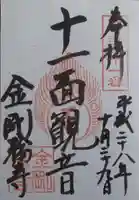 奉拝
平成二十八年
十月二十九日
十一面観音
金剛輪寺